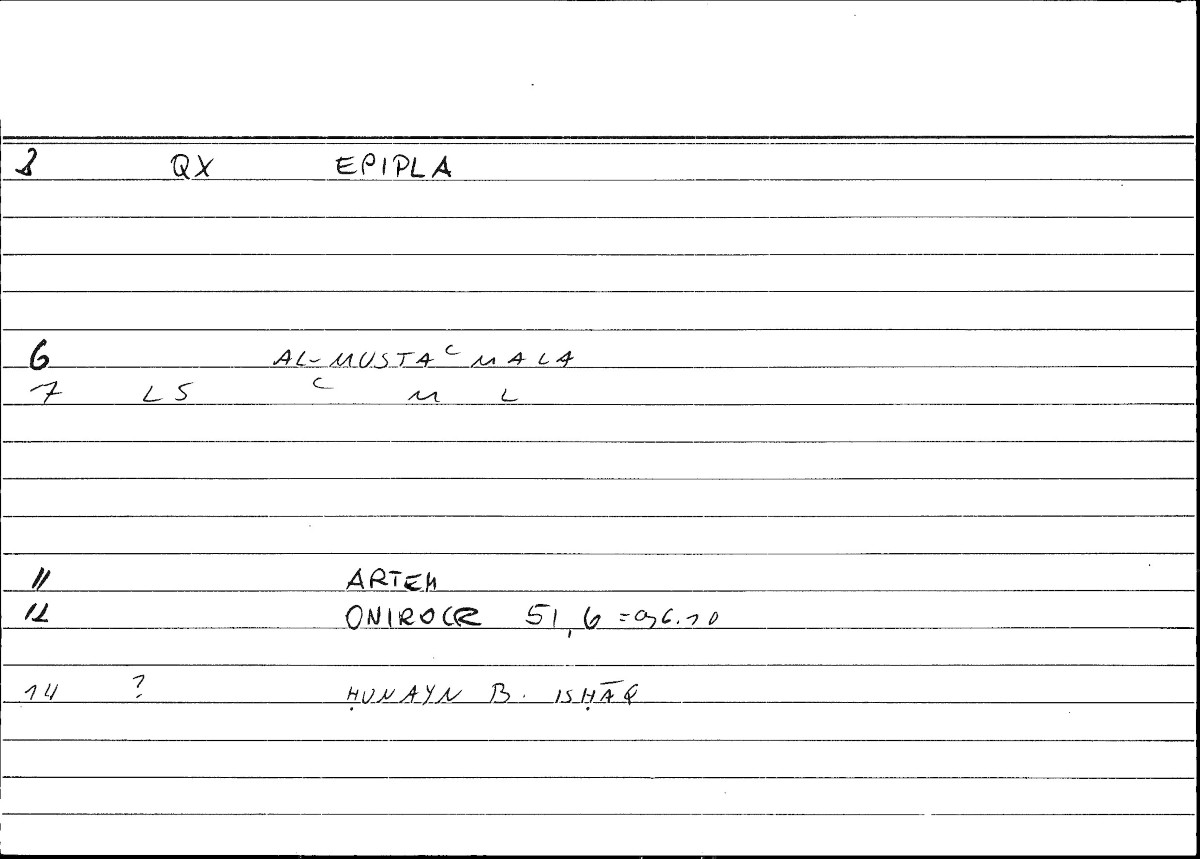 QX EPIPLA
6 AL-MUSTAᶜMALA
7 LS ᶜ M L
11 ARTEM
12 ONIROCR 51,6
14 ? ḤUNAYN B. ISḤĀQ